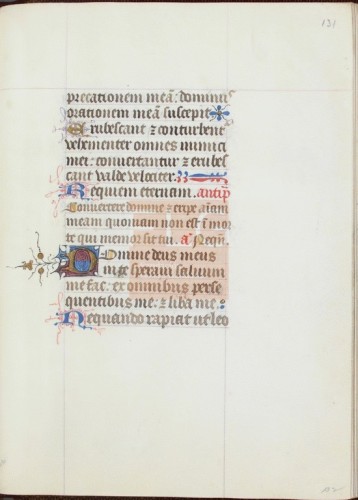 131
precationem meā: dominus
orationem meā suscepit
Erubescant ⁊ conturbent
vehementer omnes inimici
mei: convertantur ⁊ erubes
cant valde velociter.
Requiem eternam. antiph̄
Convertere domine ⁊ eripe aīam
meam quoniam non est ī mor
te qui memor sit tui. añ. Nequā.
Domine deus meus
in te speravi salvum
me fac: ex omnibus perse
quentibus me: ⁊ libā me.
Nequando rapiat ut leo